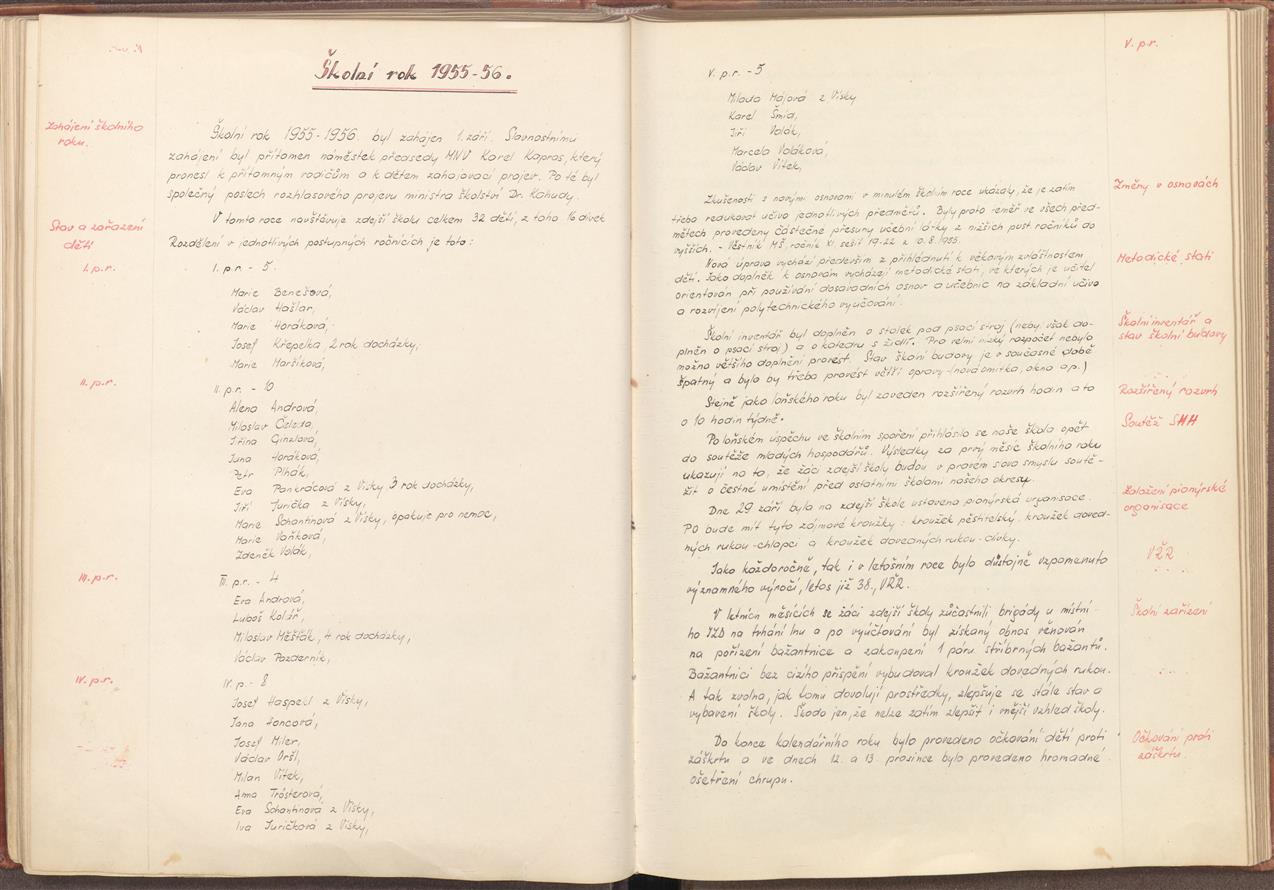 Školní rok 1955-56.
Zahájení školního
roku.
Školní rok 1955-1956 byl zahájen 1. září. Slavnostnímu
zahájení byl přítomen náměstek předsedy MNV Karel Kapras, který
pronesl k přítomným rodičům a k dětem zahajovací projev. Po té byl
společný poslech rozhlasového projevu ministra školství Dr. Kahudy.
Stav a zařazení
dětí
V tomto roce navštěvuje zdejší školu celkem 32 dětí, z toho 16 dívek
Rozdělení v jednotlivých postupných ročnících je toto:
I. p.r.
I. p.r. - 5.
Marie Benešová,
Václav Hašlar,
Marie Horáková,
Josef Křepelka, 2 rok docházky,
Marie Maršíková,
II. p.r.
II. p.r. - 10
Alena Andrová,
Miloslav
Jiřina Ginzlová,
Jana Horáková,
Petr Plhák,
Eva Pankrácová z Vísky 3 rok docházky,
Jiří Juřička z Vísky,
Marie Schantinová z Vísky, opakuje pro nemoc,
Marie Vaňková,
Zdeněk Volák,
III. p.r.
III. p.r. - 4
Eva Andrová,
Luboš Kolář,
Miloslav Měšťák, 4 rok docházky,
Václav Pazderník,
IV. p.r.
IV. p. - 8
Josef Haspekl z Vísky,
Jana Joncová,
Josef Miler,
Václav Oršl,
Milan Vítek,
Anna Trösterová,
Eva Schantinová z Vísky,
Iva Juřičková z Vísky,
V. p.r.
V. p.r. - 5
Milada Májová z Vísky
Karel Šmíd,
Jiří Volák,
Marcela Voláková,
Václav Vítek,
Změny v osnovách
Zkušenosti s novými osnovami v minulém školním roce ukázaly, že je zatím
třeba redukovat učivo jednotlivých předmětů. Byly proto téměř ve všech před-
mětech provedeny částečné přesuny učební látky z nižších post. ročníků do
vyšších. - Věstník MŠ, ročník XI. sešit 19-22 z 10.8.1955.
Metodické stati
Nová úprava vychází především z přihlédnutí k věkovým zvláštnostem
dětí. Jako doplněk k osnovám vycházejí metodické stati, ve kterých je učitel
orientován při používání dosavadních osnov a učebnic na základní učivo
a rozvíjení polytechnického vyučování.
Školní inventář a
stav školní budovy
Školní inventář byl doplněn o stolek pod psací stroj (neby. však do-
plněn o psací stroj) a o katedru s židlí. Pro velmi nízký rozpočet nebylo
možno většího doplnění provést. Stav školní budovy je v současné době
špatný a bylo by třeba provést větší opravy (nová omítka, okna ap.)
Rozšířený rozvrh
Stejně jako loňského roku byl zaveden rozšířený rozvrh hodin a to
o 10 hodin týdně.
Soutěž SMH
Po loňském úspěchu ve školním spoření přihlásila se naše škola opět
do soutěže mladých hospodářů. Výsledky za prvý měsíc školního roku
ukazují na to, že žáci zdejší školy budou v pravém slova smyslu soutě-
žit o čestné umístění před ostatními školami našeho okresu.
Založení pionýrské
organisace
Dne 29 září byla na zdejší škole ustavena pionýrská organisace.
PO bude mít tyto zájmové kroužky: kroužek pěstitelský, kroužek doved-
ných rukou-chlapci a kroužek dovedných rukou-dívky.
VŘR
Jako každoročně, tak i v letošním roce bylo důstojně vzpomenuto
významného výročí, letos již 38., VŘR.
Školní zařízení
V letních měsících se žáci zdejší školy zúčastnili brigády u místní-
ho JZD na trhání lnu a po vyúčtování byl získaný obnos věnován
na pořízení bažantnice a zakoupení 1 páru stříbrných bažantů.
Bažantnici bez cizího přispění vybudoval kroužek dovedných rukou.
A tak zvolna, jak tomu dovolují prostředky, zlepšuje se stále stav a
vybavení školy. Škoda jen, že nelze zatím zlepšit i vnější vzhled školy.
Očkování proti
záškrtu.
Do konce kalendářního roku bylo provedeno očkování dětí proti
záškrtu a ve dnech 12. a 13. prosince bylo provedeno hromadné
ošetření chrupu.